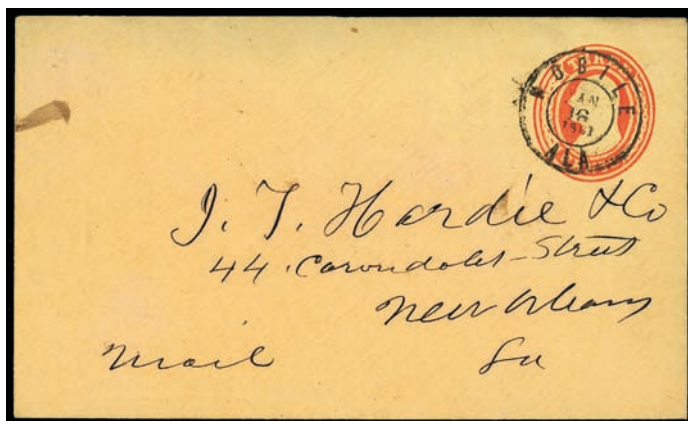 MOBILE
JAN
16
1861
ALA
J. T. Hardie & Co
44. Carondolet-Street
New Orleans
Mail La